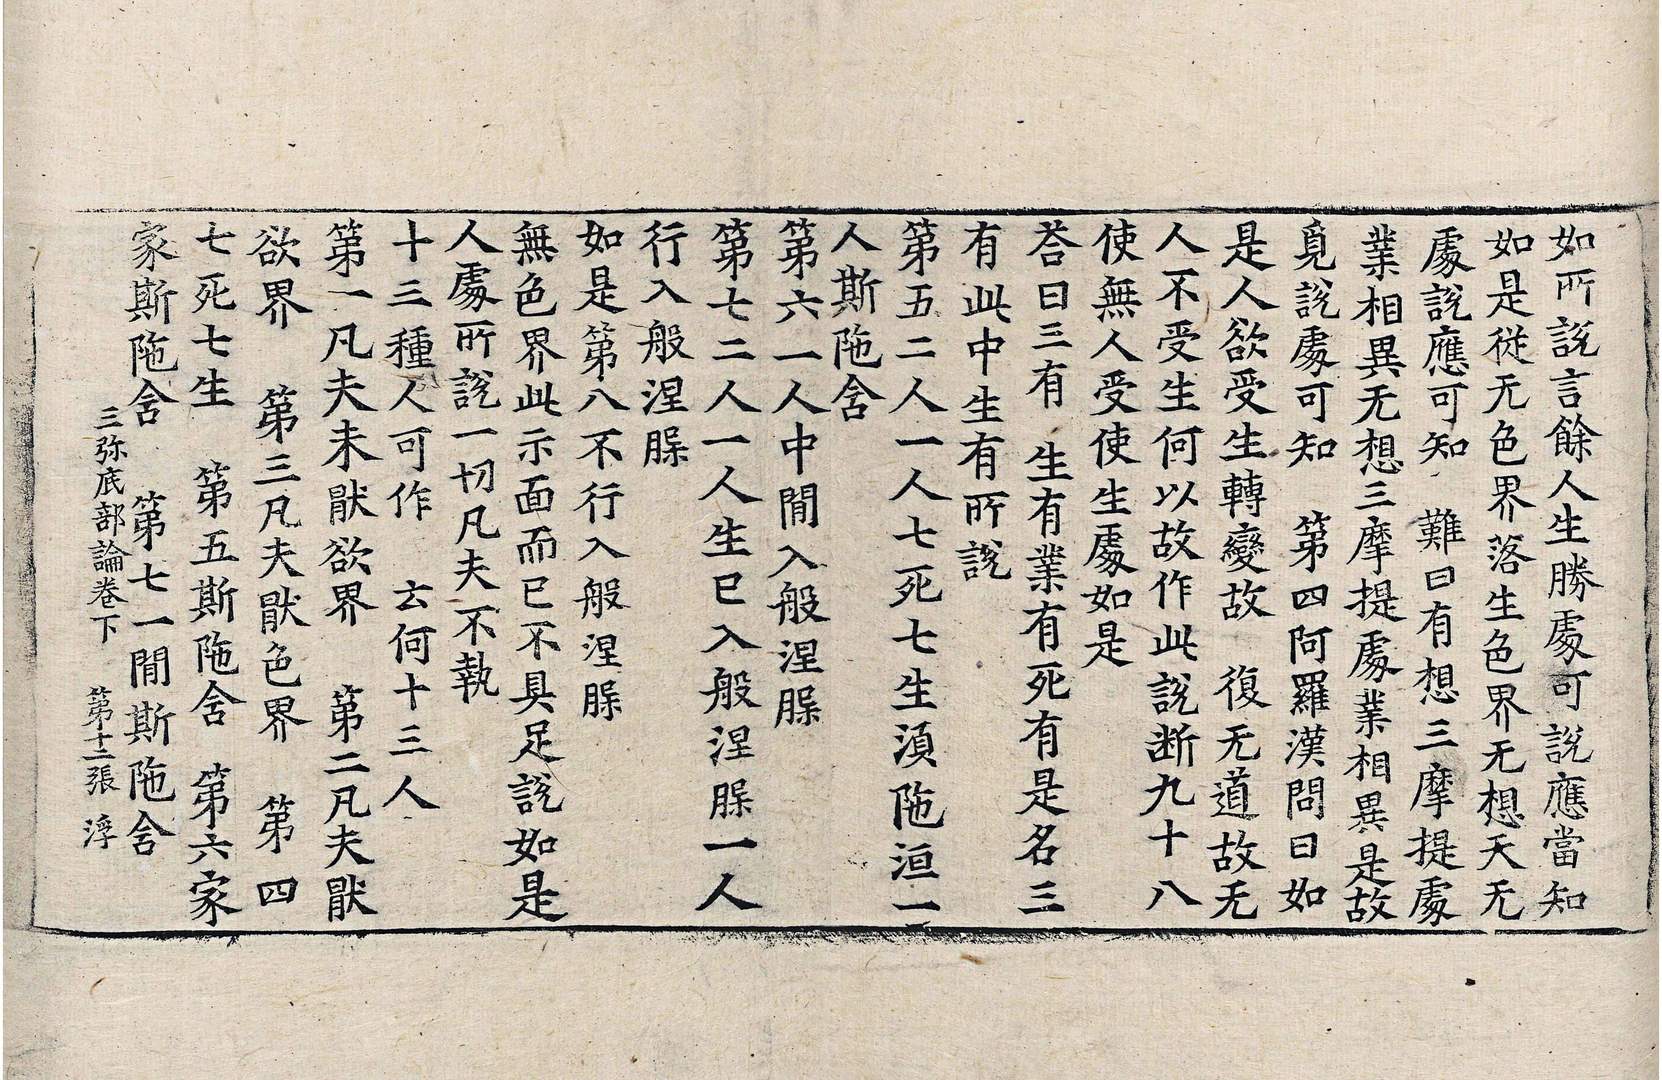 如所說言餘人生勝處可說應當知
如是從无色界落生色界无想天无
處說應可知　難曰有想三摩提處
業相異无想三摩提處業相異是故
覓說處可知　第四阿羅漢問曰如
是人欲受生轉變故　復无道故无
人不受生何以故作此說断九十八
使無人受使生處如是
荅曰三有　生有業有死有是名三
有此中生有所說
第五二人一人七死七生湏陁洹一
人斯陁舍
第六一人中間入般涅𦣱
第七二人一人生已入般涅𦣱一人
行入般涅𦣱
如是第八不行入般涅𦣱
無色界此示面而已不具足說如是
人處所說一切凡夫不執
十三種人可作　云何十三人
第一凡夫未猒欲界　第二凡夫猒
欲界　第三凡夫猒色界　第四
七死七生　第五斯陁舍　第六家
家斯陁舍　第七一間斯陁舍
三弥底部論卷下　第十二張　浮